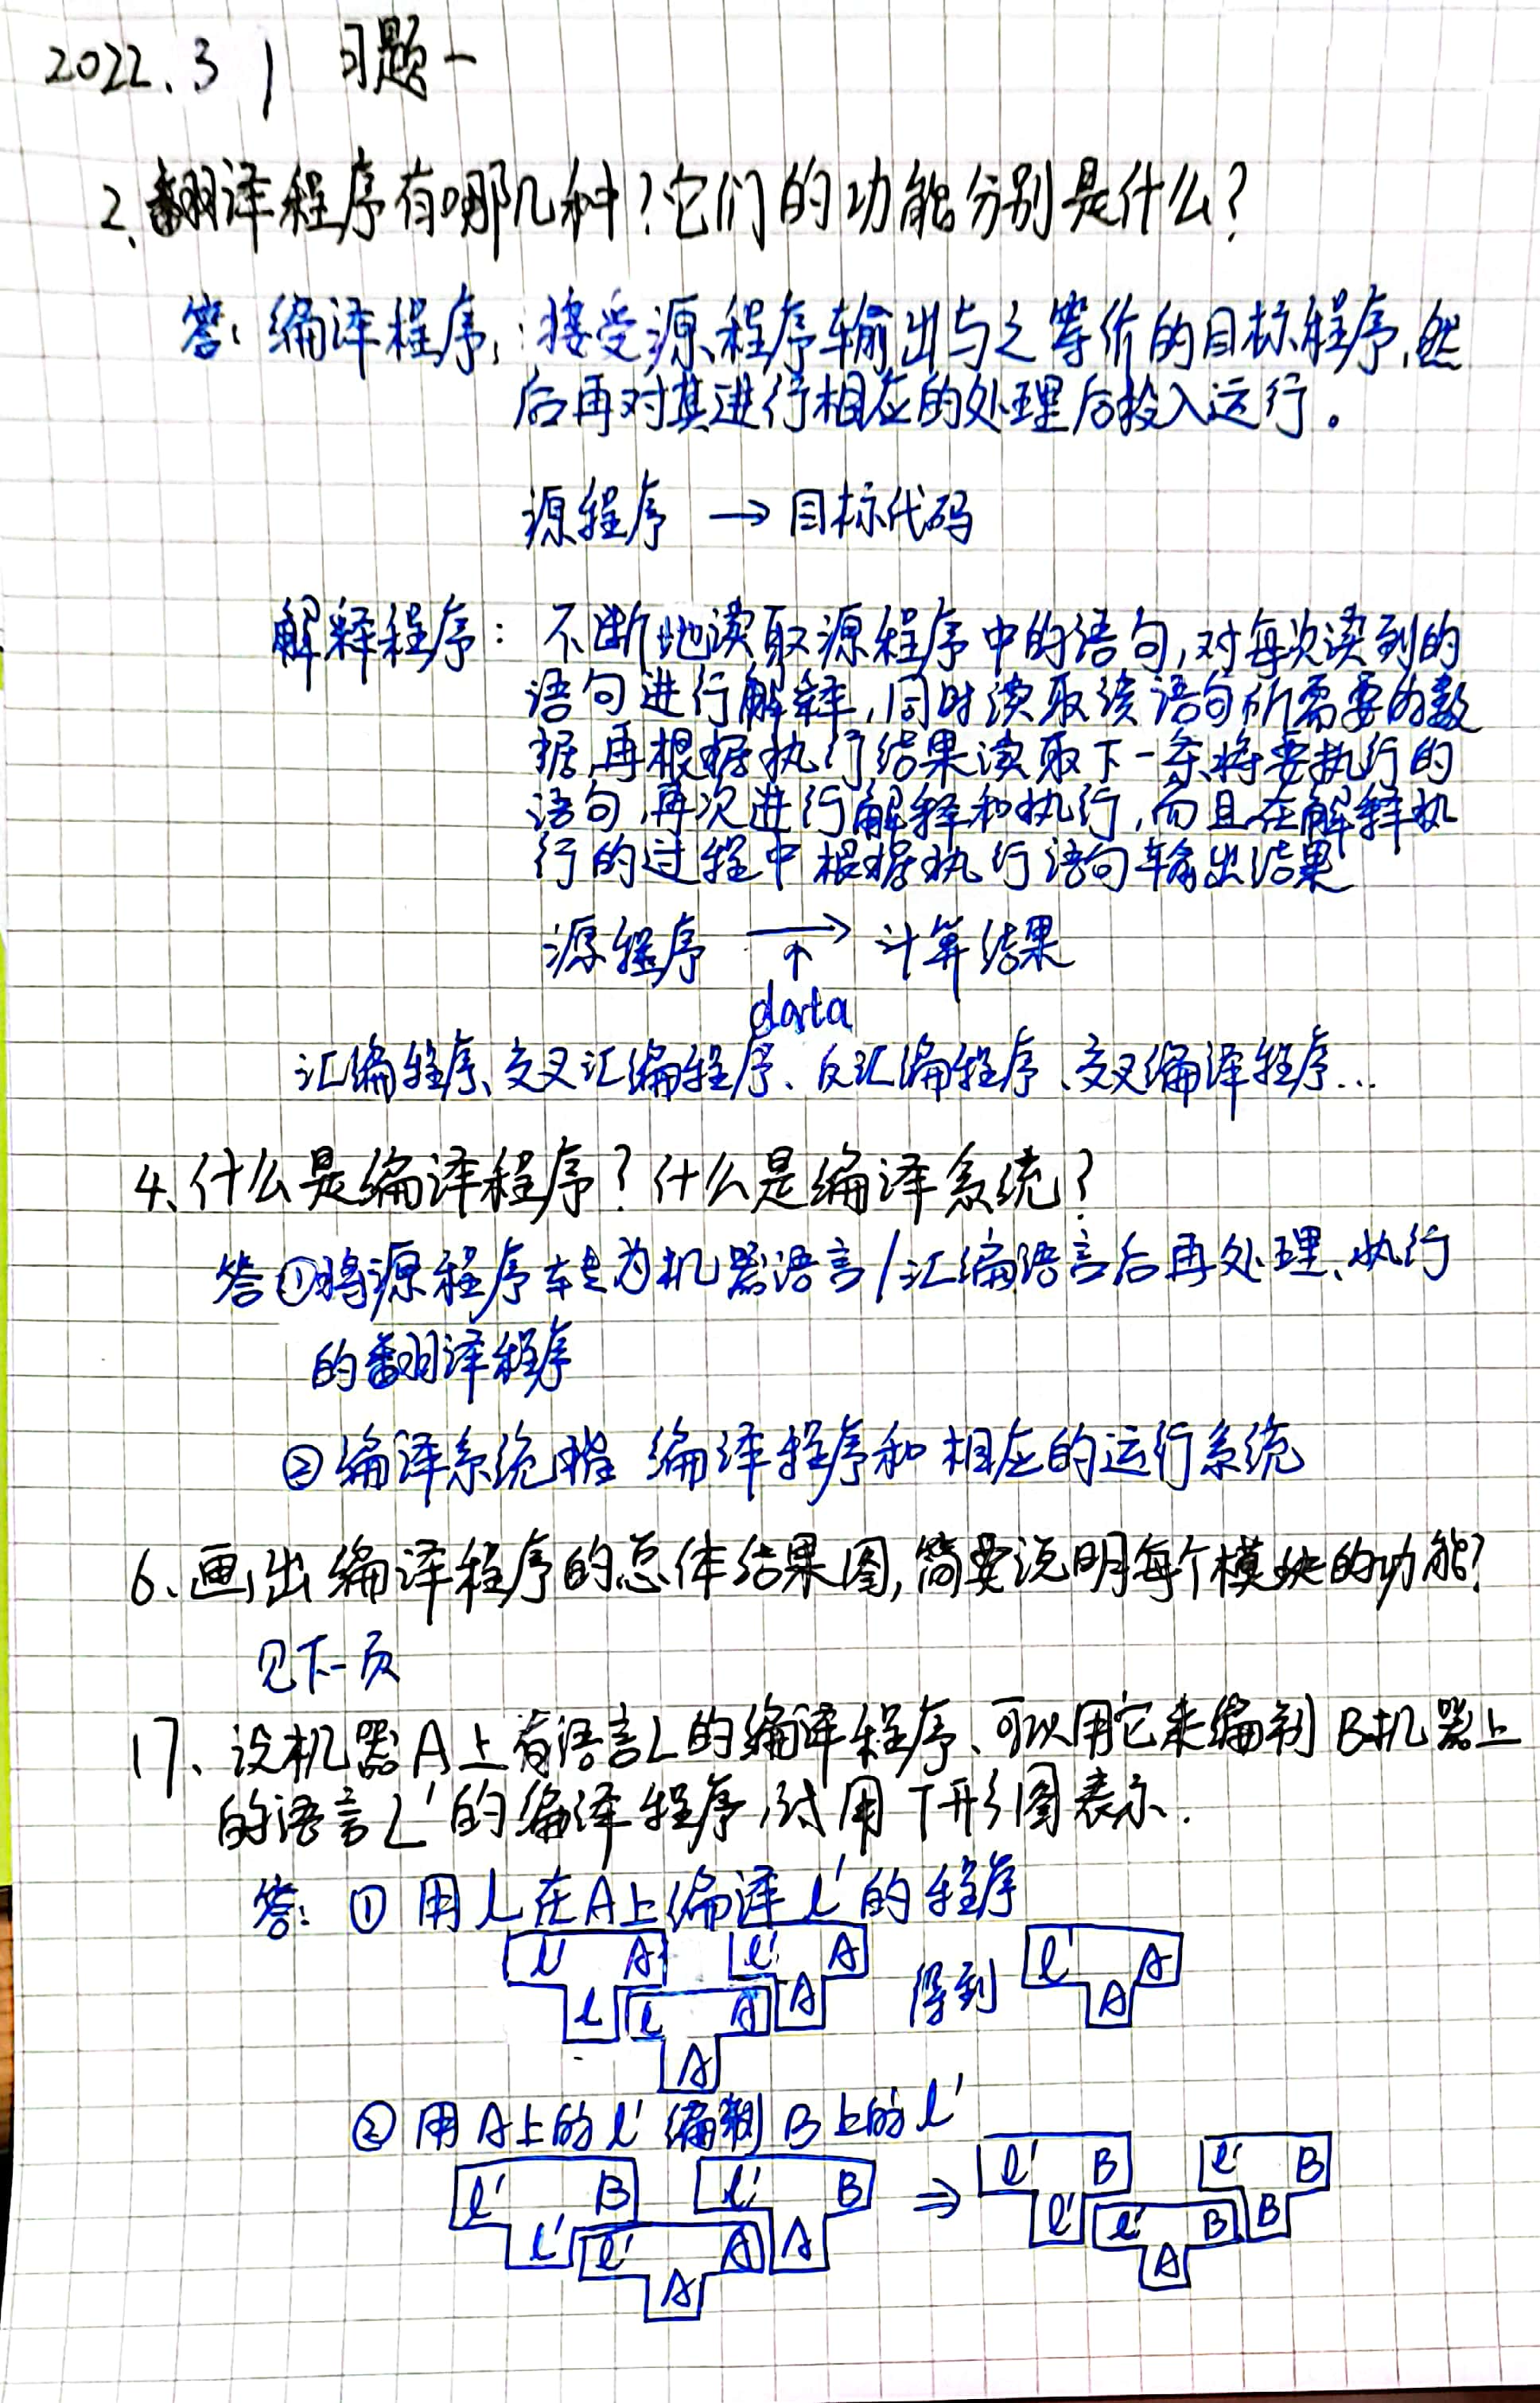 2022.3 | 习题一
2、翻译程序有哪几种？它们的功能分别是什么？
答：编译程序：接受源程序输出与之等价的目标程序，然
后再对其进行相应的处理后投入运行。
源程序 → 目标代码
解释程序：不断地读取源程序中的语句，对每次读到的
语句进行解释，同时读取该语句所需要的数
据，再根据执行结果读取下一条将要执行的
语句，再次进行解释和执行，而且在解释执
行的过程中根据执行语句输出结果
源程序 → 计算结果
↑
data
汇编程序、交叉汇编程序、反汇编程序、交叉编译程序...
4、什么是编译程序？什么是编译系统？
答①将源程序转为机器语言/汇编语言后再处理、执行
的翻译程序
②编译系统 编译程序和相应的运行系统
6、画出编译程序的总体结果图，简要说明每个模块的功能？
见下一页
17、设机器A上有语言L的编译程序、可以用它来编制B机器上
的语言L'的编译程序，试用T形图表示.
答：① 用L在A上编译L'的程序
L' A L' A 得到 L' A
L L A A A
A
② 用A上的L'编制B上的L'
L' B L' B ⇒ L' B L' B
L' L' A A L' L' B B
A A